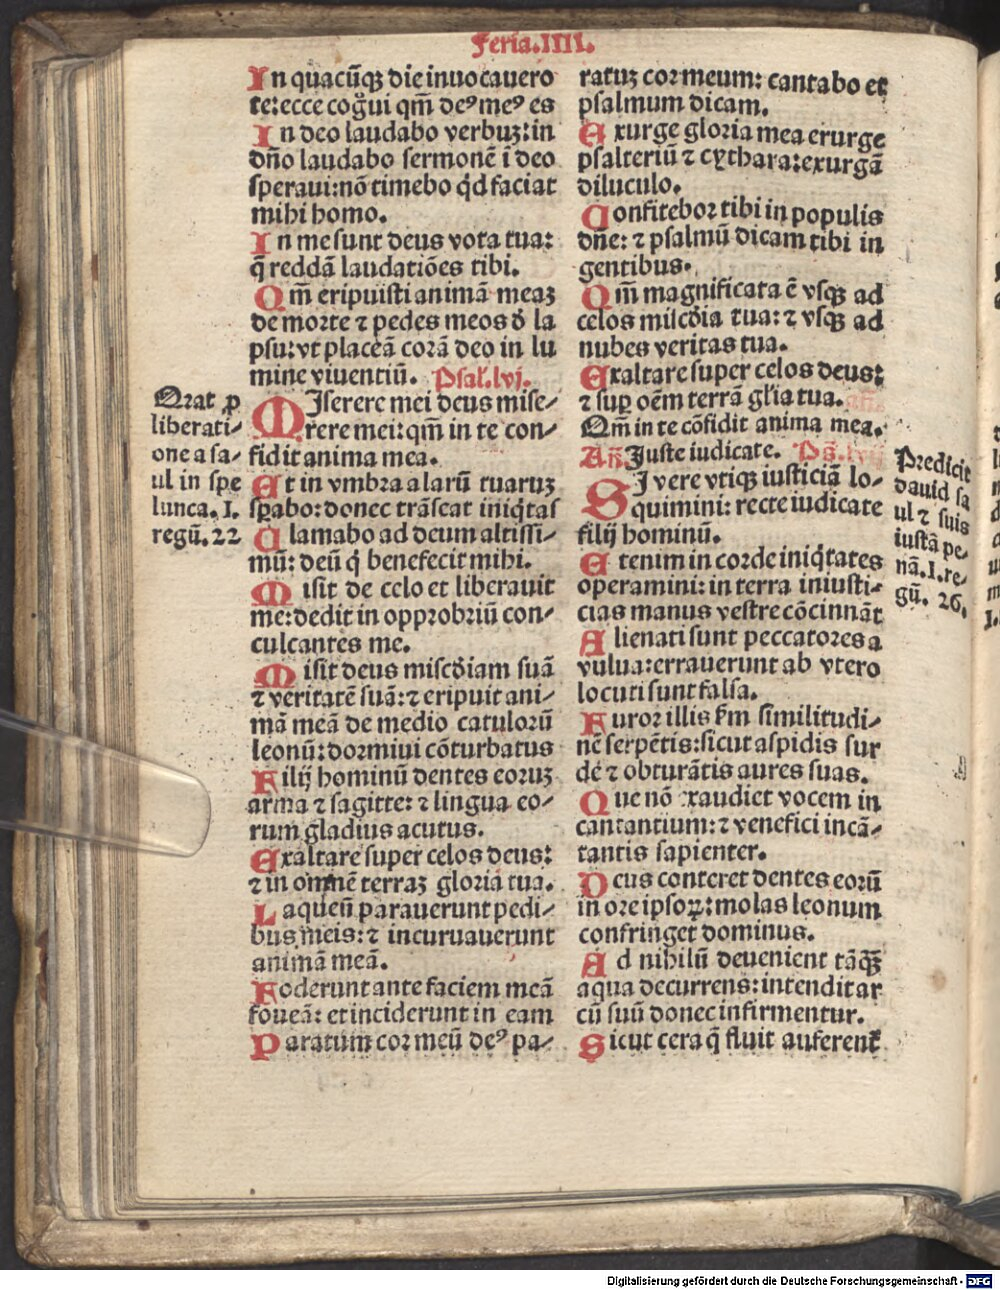 Feria.IIII.
In quacūqꝫ die inuocauero
te:ecce cognui qm̄ deꝰ meꝰ es
In deo laudabo verbuꝫ: in
dn̄o laudabo sermonē ī deo
speraui:nō timebo qd faciat
mihi homo.
In me sunt deus vota tua:
q̄ reddā laudatiōes tibi.
Qm̄ eripuisti animā meaꝫ
de morte ⁊ pedes meos đ la
psu:vt placeā corā deo in lu
mine viventiū. Psal.lvi.
MIserere mei deus mise-
rere mei: qm̄ in te con-
fidit anima mea.
Et in vmbra alarū tuaruꝫ
sꝑabo: donec trāseat iniq̇tas
Clamabo ad deum altissi-
mū: deū q̇ benefecit mihi.
Misit de celo et liberauit
me:dedit in opprobriū con-
culcantes me.
Misit deus miscđiam suā
⁊ veritatē suā: ⁊ eripuit ani-
mā meā de medio catulorū
leonū: dormiui cōturbatus
Filij hominū dentes eoruꝫ
arma ⁊ sagitte: ⁊ lingua eo-
rum gladius acutus.
Exaltare super celos deus:
⁊ in omnē terraꝫ gloria tua.
Laqueū parauerunt pedi-
bus meis: ⁊ incuruauerunt
animā meā.
Foderunt ante faciem meā
foueā: et inciderunt in eam
Paratum cor meū deꝰ pa-
Orat ꝓ
liberati-
one a sa-
ul in spe
lunca. I.
regū. 22
ratuꝫ cor meum: cantabo et
psalmum dicam.
Exurge gloria mea exurge
psalteriū ⁊ cythara:exurgā
diluculo.
Confitebor tibi in populis
dn̄e: ⁊ psalmū dicam tibi in
gentibus.
Qm̄ magnificata ē vsqꝫ ad
celos miscđia tua: ⁊ vsqꝫ ad
nubes veritas tua.
Exaltare super celos deus:
⁊ suꝑ oēm terrā gl'ia tua. añ.
Qm̄ in te cōfidit anima mea.
Añ Juste iudicate. Ps̄.lvij
SI vere vtiqꝫ iusticiā lo-
quimini: recte iudicate
filij hominū.
Etenim in corde iniq̇tates
operamini: in terra iniusti-
cias manus vestre cōcinnāt
Alienati sunt peccatores a
vulua:errauerunt ab vtero
locuti sunt falsa.
Furor illis fm̄ similitudi-
nē serpētis:sicut aspidis sur
de ⁊ obturātis aures suas.
Que nō exaudiet vocem in
cantantium: ⁊ venefici incā-
tantis sapienter.
Deus conteret dentes eorū
in ore ipsoꝝ: molas leonum
confringet dominus.
Ad nihilū deuenient tāqꝫ
aqua decurrens: intendit ar
cū suū donec infirmentur.
Sicut cera q̄ fluit auferent̄
Predicit
dauid sa
ul ⁊ suis
iustā pe-
nā. I. re-
gū. 26.
Digitalisierung gefördert durch die Deutsche Forschungsgemeinschaft - DFG